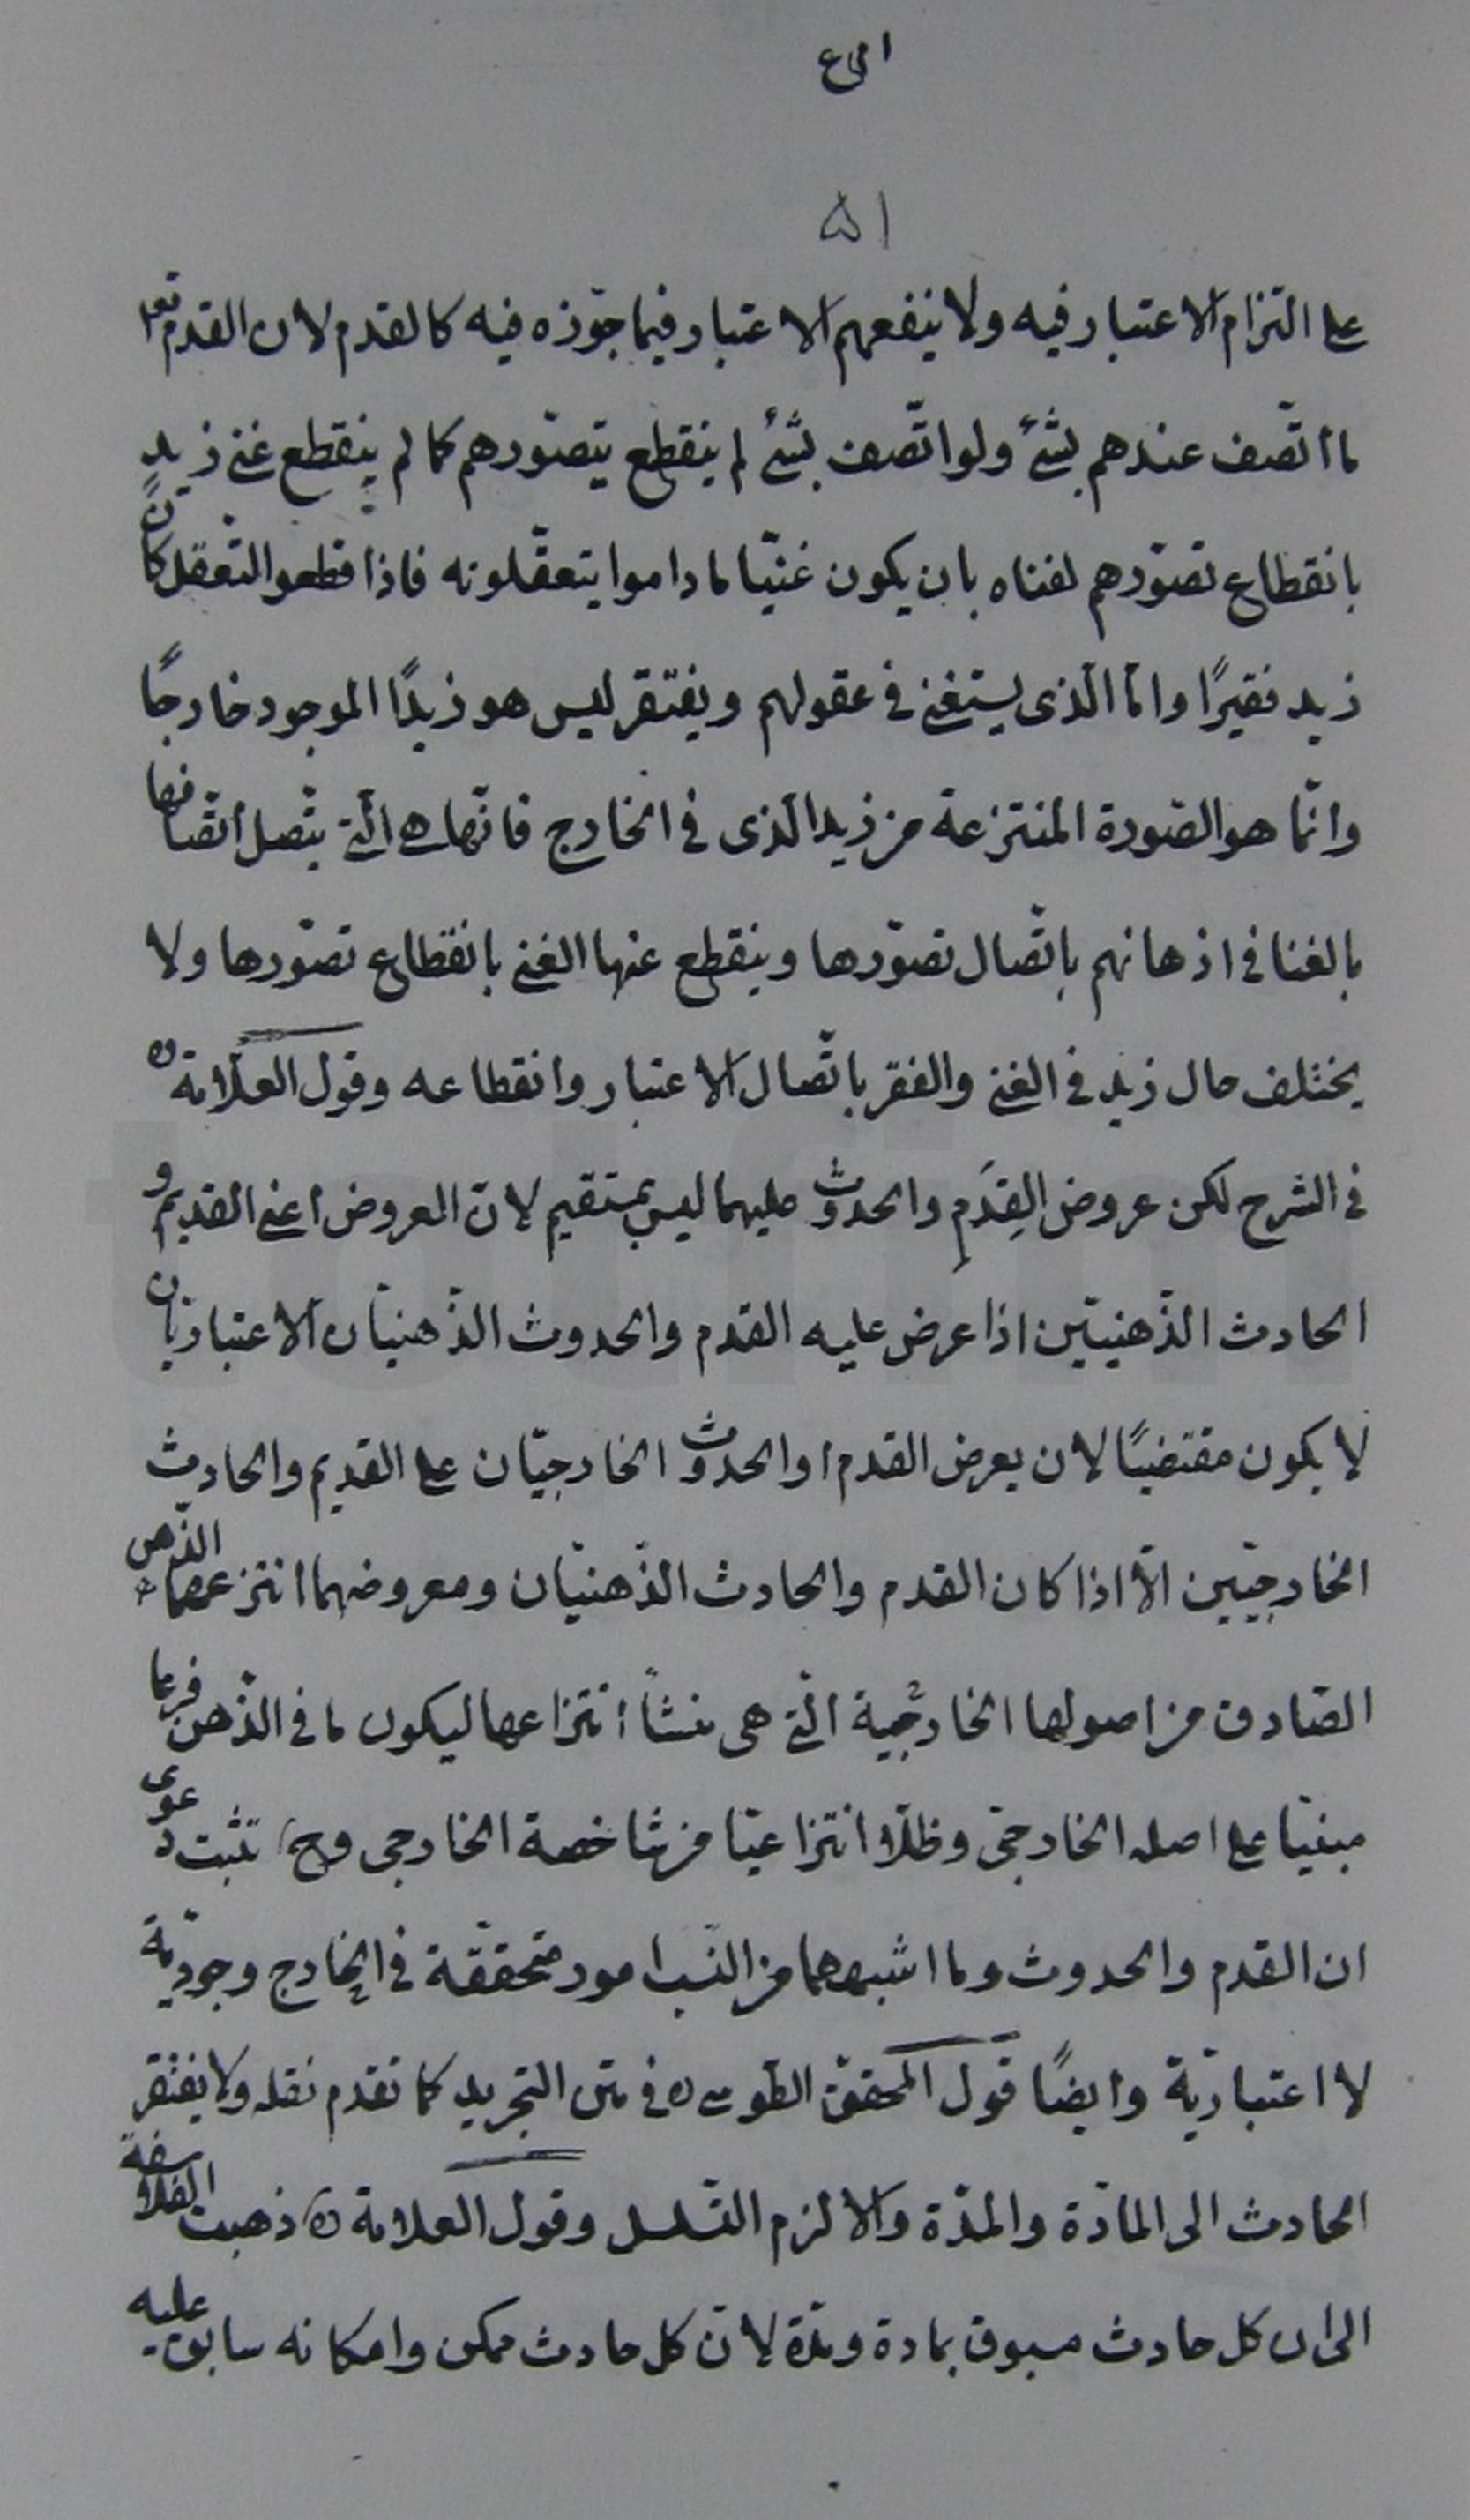 ٥١
على التزام الاعتبار فيه ولا ينفعهم الاعتبار فيما جوّزه فيه كالقدم لان القدم
ما اتّصف عندهم بشئ ولو اتّصف بشئ لم ينقطع بتصوّرهم كما لم ينقطع غنى زيد
بانقطاع تصوّرهم لغناه بان يكون غنيّا ما داموا يتعقّلونه فاذا قطعوا التّعقل كان
زيد فقيرًا وامّا الّذى يستغنى فى عقولهم ويفتقر ليس هو زيدًا الموجود خارجًا
وانّما هو الصّورة المنتزعة من زيد الّذى فى الخارج فانّها هى الّتى يتّصل اتّصافها
بالغنا فى اذهانهم باتّصال تصوّرها وينقطع عنها الغنى بانقطاع تصوّرها ولا
يختلف حال زيد فى الغنى والفقر باتّصال الاعتبار وانقطاعه وقول العلّامة ره
فى الشرح لكن عروض القِدَمِ والحدوث عليهما ليس بمستقيم لانّ العروض اعنى القديم و
الحادث الذّهنيّين اذا عرض عليه القدم والحدوث الذّهنيّان الاعتباريّان
لا يكون مقتضيًا لان يعرض القدم او الحدوث الخارجيّان على القديم والحادث
الخارجيّين الّا اذا كان القدم والحادث الذّهنيّان ومعروضهما انتزعها الذّهن
الصّادق من اصولها الخارجيّة الّتى هى منشأ انتزاعها ليكون ما فى الذّهن فرعا
مبنيّا على اصله الخارجىّ وظلّا انتزاعيّا من شاخصة الخارجى وح تثبت دعوى
ان القدم والحدوث وما اشبههما من النّسب امور متحققّة فى الخارج وجوديّة
لا اعتباريّة وايضًا قول المحقق الطّوسى ره فى متن التجريد كما تقدم نقله ولا يفتقر
الحادث الى المادّة والمدّة والا لزم التّسلسل وقول العلامة ره ذهبت الفلاسفة
الى ان كل حادث مسبوق بمادة ومدّة لانّ كل حادث ممكن وامكانه سابق عليه